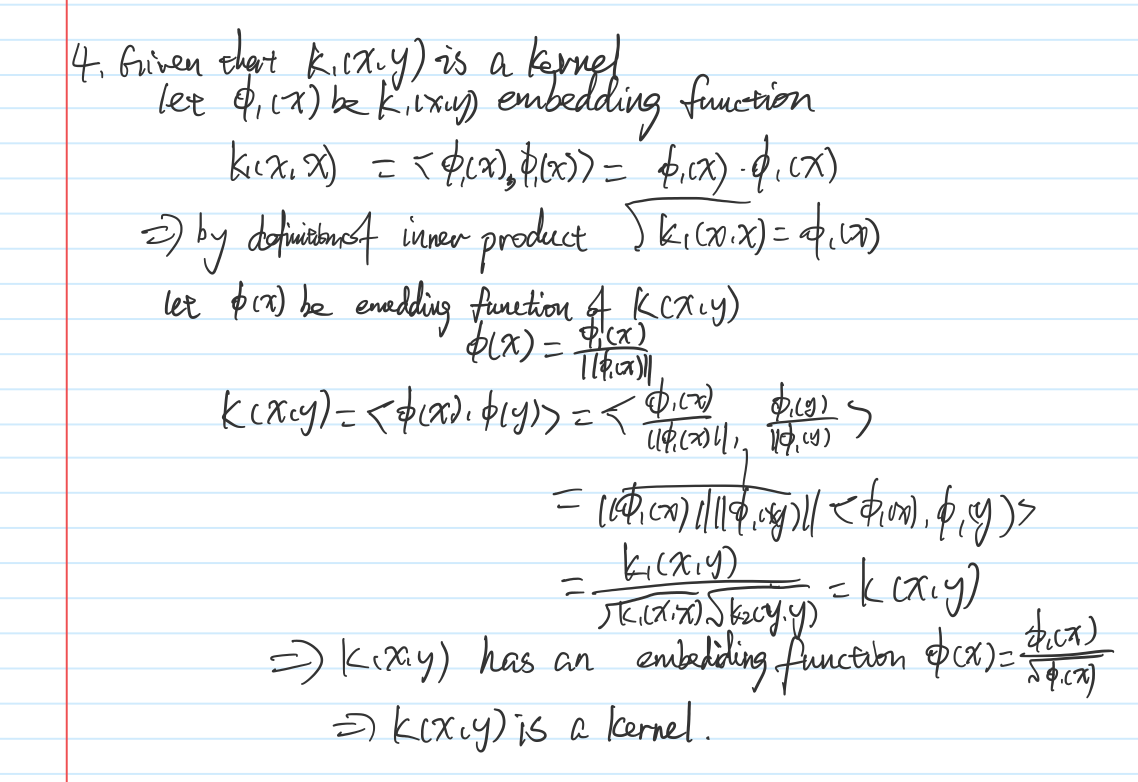 4. Given that k₁(x,y) is a kernel
let ϕ₁(x) be k₁(x,y) embedding function
k₁(x,x) = <ϕ₁(x),ϕ₁(x)> = ϕ₁(x)·ϕ₁(x)
⇒ by definition of inner product √k₁(x,x) = ϕ₁(x)
let ϕ(x) be emedding function of K(x,y)
ϕ(x) = ϕ₁(x)/||ϕ₁(x)||
K(x,y) = <ϕ(x), ϕ(y)> = <ϕ₁(x)/||ϕ₁(x)||, ϕ₁(y)/||ϕ₁(y)>
= 1/||ϕ₁(x)||||ϕ₁(y)|| <ϕ₁(x), ϕ₁(y)>
= k₁(x,y)/√k₁(x,x)√k₂(y,y) = k(x,y)
⇒ k(x,y) has an embedding function ϕ(x) = ϕ₁(x)/√ϕ₁(x)
⇒ k(x,y) is a kernel.